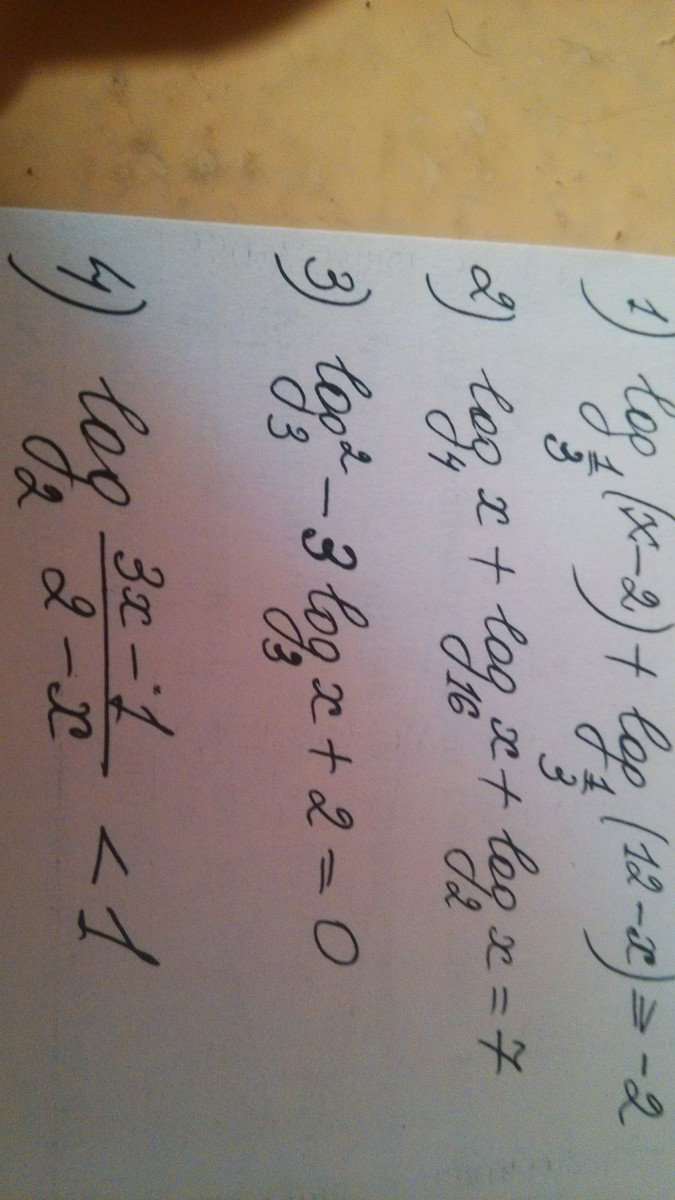 1) log_{1/3} (x-2) + log_{1/3} (12-x) ⩾ -2
2) log_4 x + log_16 x + log_2 x = 7
3) log²_3 - 3 log_3 x + 2 = 0
4) log_2 \frac{3x-1}{2-x} < 1